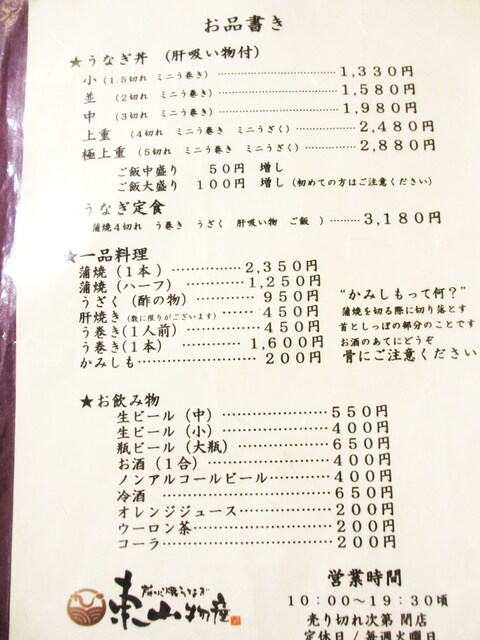 お品書き
★うなぎ丼 （肝吸い物付）
小（1.5切れ ミニう巻き）……………………1,330円
並（2切れ ミニう巻き）……………………1,580円
中（3切れ ミニう巻き）……………………1,980円
上重（4切れ ミニう巻き ミニうざく）…………2,480円
極上重（5切れ ミニう巻き ミニうざく）…………2,880円
ご飯中盛り 50円 増し
ご飯大盛り 100円 増し（初めての方はご注意ください）
うなぎ定食
（蒲焼4切れ う巻き うざく 肝吸い物 ご飯 ）………3,180円
★一品料理
蒲焼（1本）……………2,350円
蒲焼（ハーフ）…………1,250円
うざく（酢の物）…………950円
肝焼き（数に限りがございます）……450円
う巻き（1人前）…………450円
う巻き（1本）…………1,600円
かみしも…………………200円
“かみしもって何？”
蒲焼を切る際に切り落とす
首としっぽの部分のことです
お酒のあてにどうぞ
骨にご注意ください
★お飲み物
生ビール（中）……………………550円
生ビール（小）……………………400円
瓶ビール（大瓶）…………………650円
お酒（1合）………………………400円
ノンアルコールビール……………400円
冷酒 ………………………………650円
オレンジジュース…………………200円
ウーロン茶…………………………200円
コーラ………………………………200円
東山物産
営業時間
10：00～19：30頃
売り切れ次第 閉店
定休日/毎週火曜日